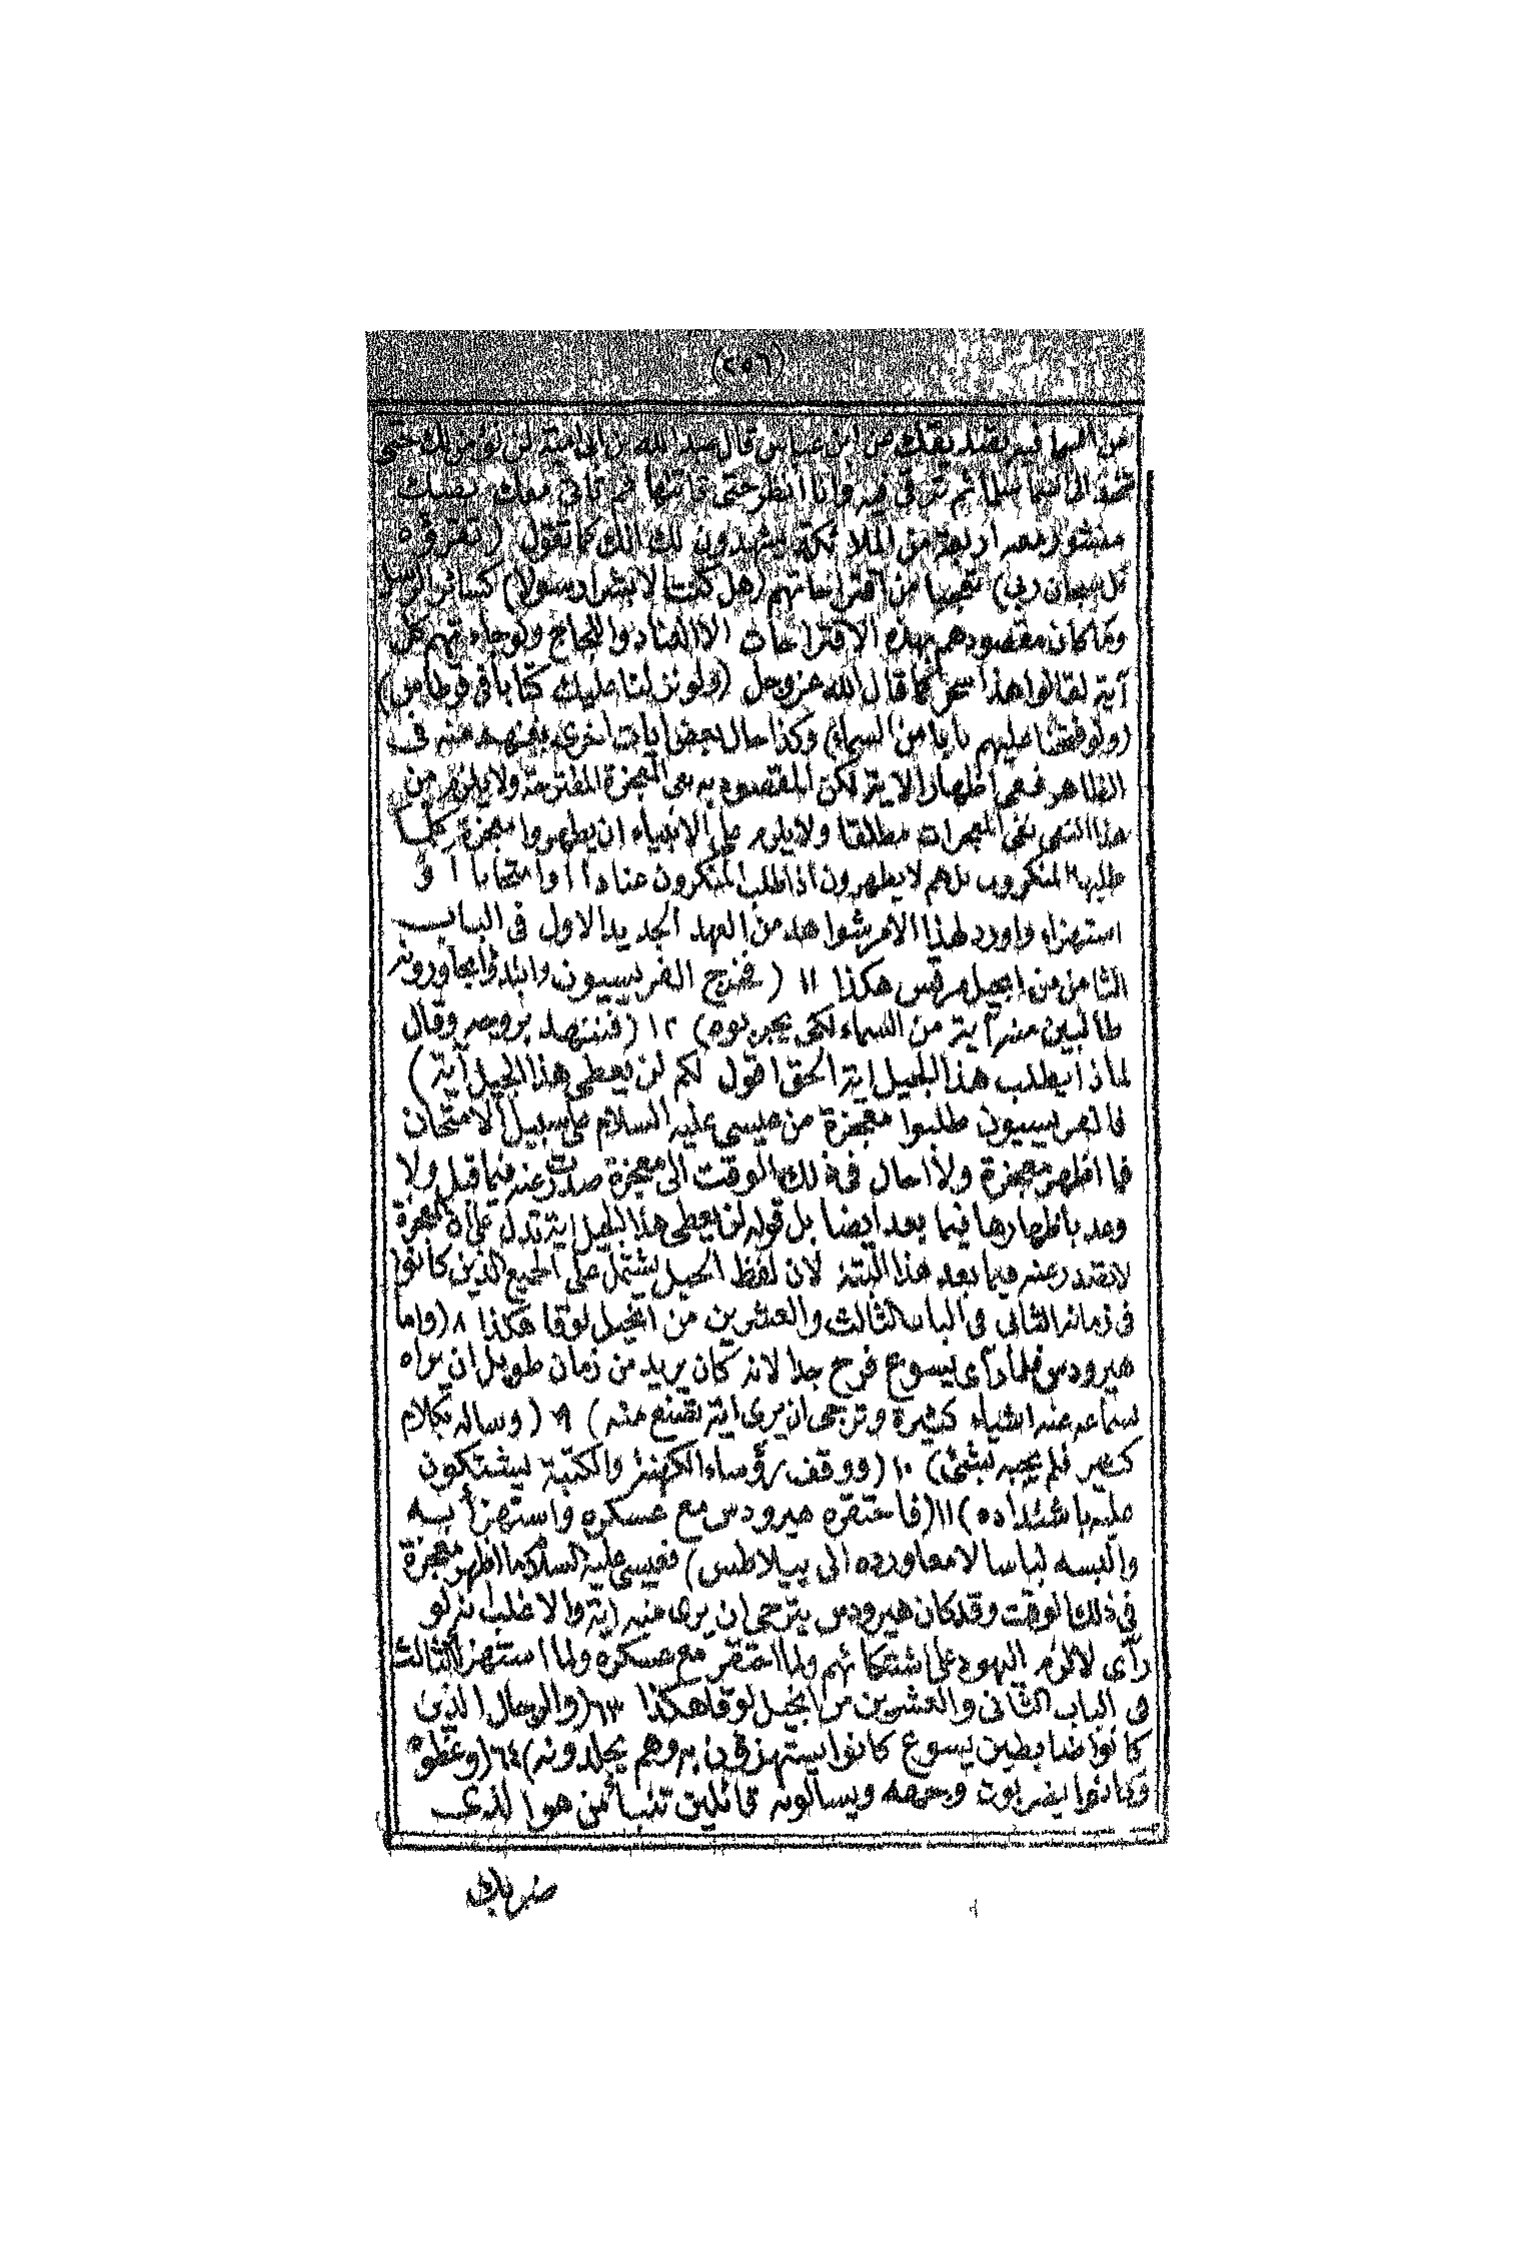 (٢٥٦)
من السماء فيه تصديقك عن ابن عباس قال عبد الله بن ابى امية لن نؤمن لك حتى
تتخذ الى السماء سلما ثم ترقى فيه وانا انظر حتى تاتيها ثم تاتى معك بصك
منشور معه اربعة من الملائكة يشهدون لك انك كما تقول (تقرؤه
قل سبحان ربى) تعجبا من اقتراحاتهم (هل كنت الا بشرا رسولا) كسائر الرسل
وكما كان مقصودهم بهذه الاقتراحات الا العناد واللجاج ولو جاءتهم كل
آية لقالوا هذا سحر كما قال الله عز وجل (ولو نزلنا عليك كتابا فى قرطاس)
(ولو فتحنا عليهم بابا من السماء) وكذا حال بعض ايات اخرى يفهم منه فى
الظاهر نفى اظهار الاية لكن المقصود به نفى المعجزة المقترحة ولا يلزم من
هذا النفى نفى المعجزات مطلقا ولا يلزم على الانبياء ان يظهروا معجزة كلما
طلبها المنكرون بل هم لا يظهرون اذا طلب المنكرون عنادا أو امتحانا أو
استهزاء واورد لهذا الامر شواهد من العهد الجديد الاول فى الباب
الثامن من انجيل مرقس هكذا ١١ (فخرج الفريسيون وابتدؤا يحاورونه
طالبين منه آية من السماء لكى يجربوه) ١٢ (فتنهد بروحه وقال
لماذا يطلب هذا الجيل اية الحق اقول لكم لن يعطى هذا الجيل آية)
فالفريسيون طلبوا معجزة من عيسى عليه السلام على سبيل الامتحان
فما اظهر معجزة ولا احال فى ذلك الوقت الى معجزة صدرت عنه فيما قبل ولا
وعد باظهارها فيما بعد ايضا بل قوله لن يعطى هذا الجيل اية تدل على ان المعجزة
لا تصدر عنه فيما بعد هذا البتة لان لفظ الجيل يشتمل على الجميع الذين كانوا
فى زمانه الثانى فى الباب الثالث والعشرين من انجيل لوقا هكذا ٨ (واما
هيرودس فلما رآى يسوع فرح جدا لانه كان يريد من زمان طويل ان يراه
لسماعه عنه اشياء كثيرة وترجى ان يرى اية تصنع منه) ٩ (وساله بكلام
كثير فلم يجبه بشئ) ١٠ (ووقف رؤساء الكهنة والكتبة يشتكون
عليه باشتداد) ١١ (فاحتقره هيرودس مع عسكره واستهزأ به
والبسه لباسا لامعا ورده الى بيلاطس) فعيسى عليه السلام ما اظهر معجزة
فى ذلك الوقت وقد كان هيرودس يترجى ان يرى منه اية والاغلب انه لو
رآى لالزم اليهود على اشتكائهم ولما احتقر مع عسكره ولما استهزأ الثالث
فى الباب الثانى والعشرين من انجيل لوقا هكذا ٦٣ (والرجال الذين
كانوا ضابطين يسوع كانوا يستهزؤن به وهم يجلدونه) ٦٤ (وغطوه
وكانوا يضربون وجهه ويسالونه قائلين تنبأ من هو الذى
ضربك